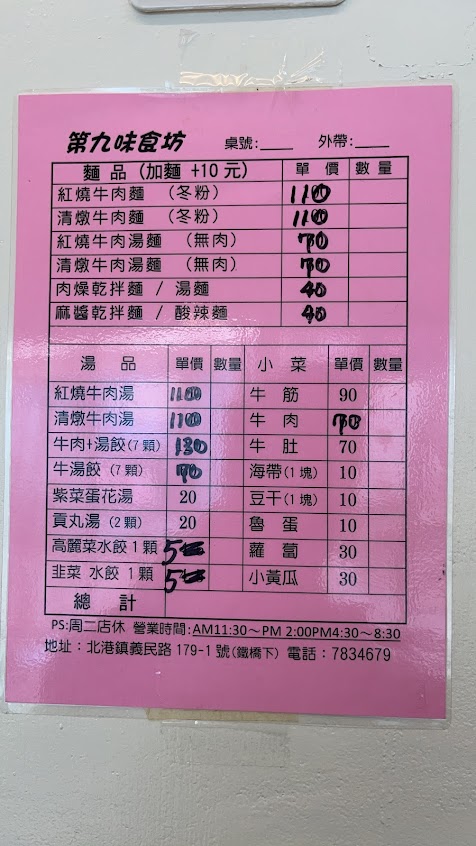 第九味食坊 桌號:____ 外帶:____
麵 品 (加麵 +10 元) 單 價 數 量
紅燒牛肉麵 (冬粉) 110
清燉牛肉麵 (冬粉) 110
紅燒牛肉湯麵 (無肉) 70
清燉牛肉湯麵 (無肉) 70
肉燥乾拌麵 / 湯麵 40
麻醬乾拌麵 / 酸辣麵 40
湯 品 單價 數量 小 菜 單價 數量
紅燒牛肉湯 110 牛 筋 90
清燉牛肉湯 110 牛 肉 70
牛肉+湯餃(7 顆) 130 牛 肚 70
牛湯餃 (7 顆) 70 海帶(1 塊) 10
紫菜蛋花湯 20 豆干(1 塊) 10
貢丸湯 (2 顆) 20 魯 蛋 10
高麗菜水餃 1 顆 5 蘿 蔔 30
韭菜 水餃 1 顆 5 小黃瓜 30
總 計
PS:周二店休 營業時間:AM11:30～PM 2:00PM4:30～8:30
地址：北港鎮義民路 179-1 號(鐵橋下) 電話：7834679